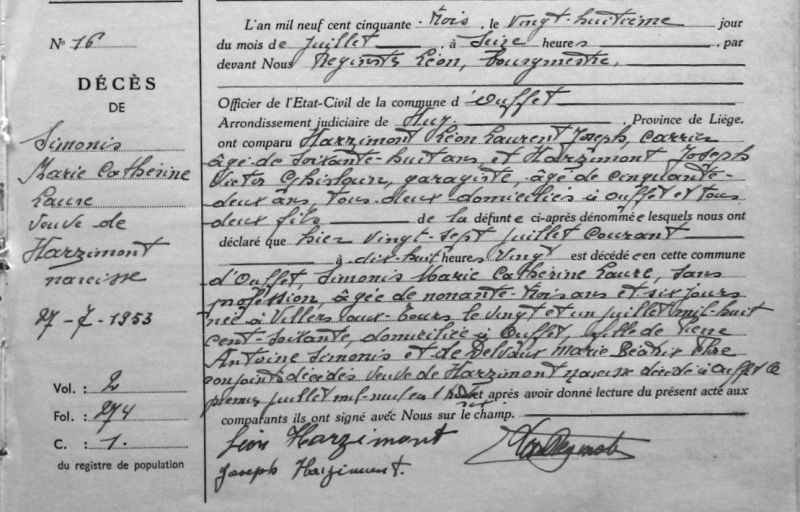 N° 16
DÉCÈS
DE
Simonis
Marie Catherine
Laure
veuve de
Harzimont
narcisse
27-7-1953
Vol. : 2
Fol. : 274
C. : 1.
du registre de population
L'an mil neuf cent cinquante-trois, le vingt-huitième jour
du mois de juillet, à seize heures, par
devant Nous Reginster Léon, bourgmestre,
Officier de l'Etat-Civil de la commune d'Ouffet
Arrondissement judiciaire de Huy, Province de Liége,
ont comparu Harzimont Léon Laurent Joseph, carrier
âgé de soixante-huit ans, et Harzimont Joseph
Victor Ghislain, garagiste, âgé de cinquante-
deux ans, tous deux domiciliés à Ouffet et tous
deux fils de la défunte ci-après dénommée lesquels nous ont
déclaré que hier vingt-sept juillet courant
à dix-huit heures vingt est décédée en cette commune
d'Ouffet, Simonis Marie Catherine Laure, sans
profession, âgée de nonante-trois ans et six jours
née à Villers aux-tours le vingt et un juillet mil-huit
cent-soixante, domiciliée à Ouffet, fille de
Antoine Simonis et de Delvaux Marie Béatrix
conjoints décédés veuve de Harzimont narcisse décédé à Ouffet le
premier juillet mil-neuf et après avoir donné lecture du présent acte aux
comparants ils ont signé avec Nous sur le champ.
Léon Harzimont
Joseph Harzimont.